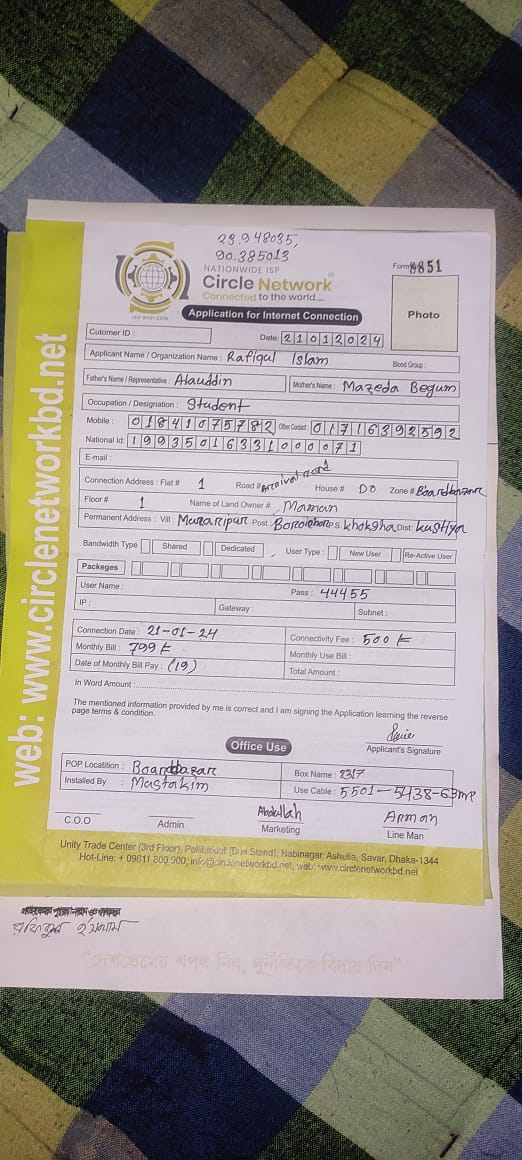 23.948035,
90.385013
NATIONWIDE ISP
Form# 8851
Circle Network
Connected to the world....
ISO 9001:2015
Application for Internet Connection
Photo
Cutomer ID :
Date: 21012024
Applicant Name / Organization Name : Rafiqul Islam Blood Group :
Father's Name / Representative : Alauddin Mother's Name : Mazeda Begum
Occupation / Designation : Student
Mobile : 01841075782 Other Contact : 01716392592
National Id: 19935016331000071
E-mail :
Connection Address : Flat # 1 Road # Arrival road House # D8 Zone # Boardbazar
Floor # 1 Name of Land Owner # Maman
Permanent Address : Vill : Muraripur Post : P.S. khoksha Dist: kustiya
Bandwidth Type Shared Dedicated User Type : New User Re-Active User
Packeges
User Name : Pass : 44455
IP : Gateway : Subnet :
Connection Date : 21-01-24 Connectivity Fee : 500 tk
Monthly Bill : 799 tk Monthly Use Bill :
Date of Monthly Bill Pay : (19) Total Amount :
In Word Amount :
The mentioned information provided by me is correct and I am signing the Application learning the reverse
page terms & condition.
Office Use
Applicant's Signature
POP Locatition : Boardbazar Box Name : 2317
Installed By : Mustakim Use Cable : 5501-5438-63mp
Abdullah Arman
C.O.O Admin Marketing Line Man
Unity Trade Center (3rd Floor), Polli Biddut (Bus Stend), Nabinagar, Ashulia, Savar, Dhaka-1344
Hot-Line: + 09611 800 900, info@circlenetworkbd.net, web: www.circlenetworkbd.net
web: www.circlenetworkbd.net
রফিকুল ইসলাম
"দেশপ্রেমের শপথ নিন, দুর্নীতিকে বিদায় দিন"